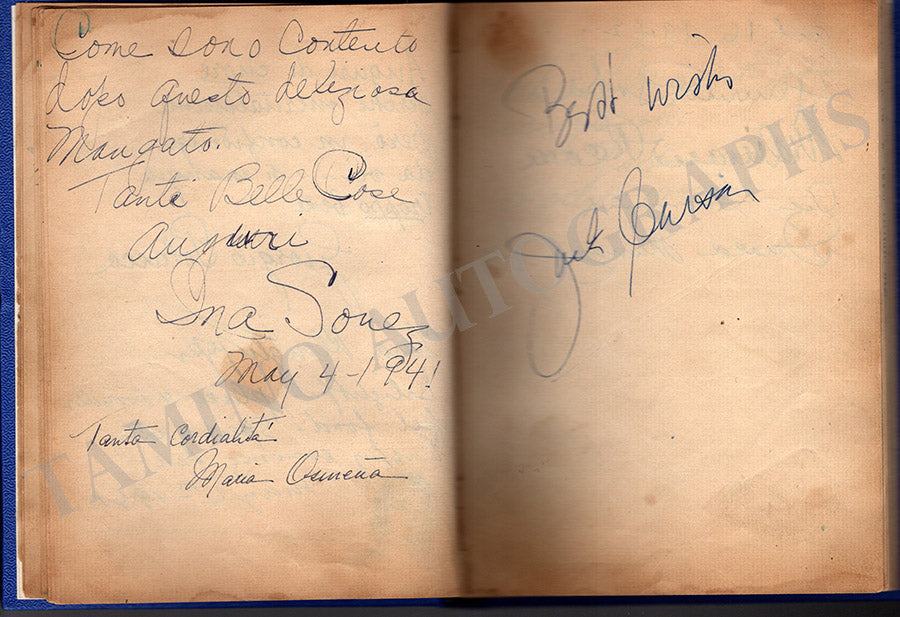 Come sono Contento
dopo questo deleziosa
Mangato.
Tante Belle Cose
Auguri
Ina Souez
May 4-1941
Tanta Cordialitá
Maria Osmeña
Best wishes
Jack Carson
TAMINO AUTOGRAPHS